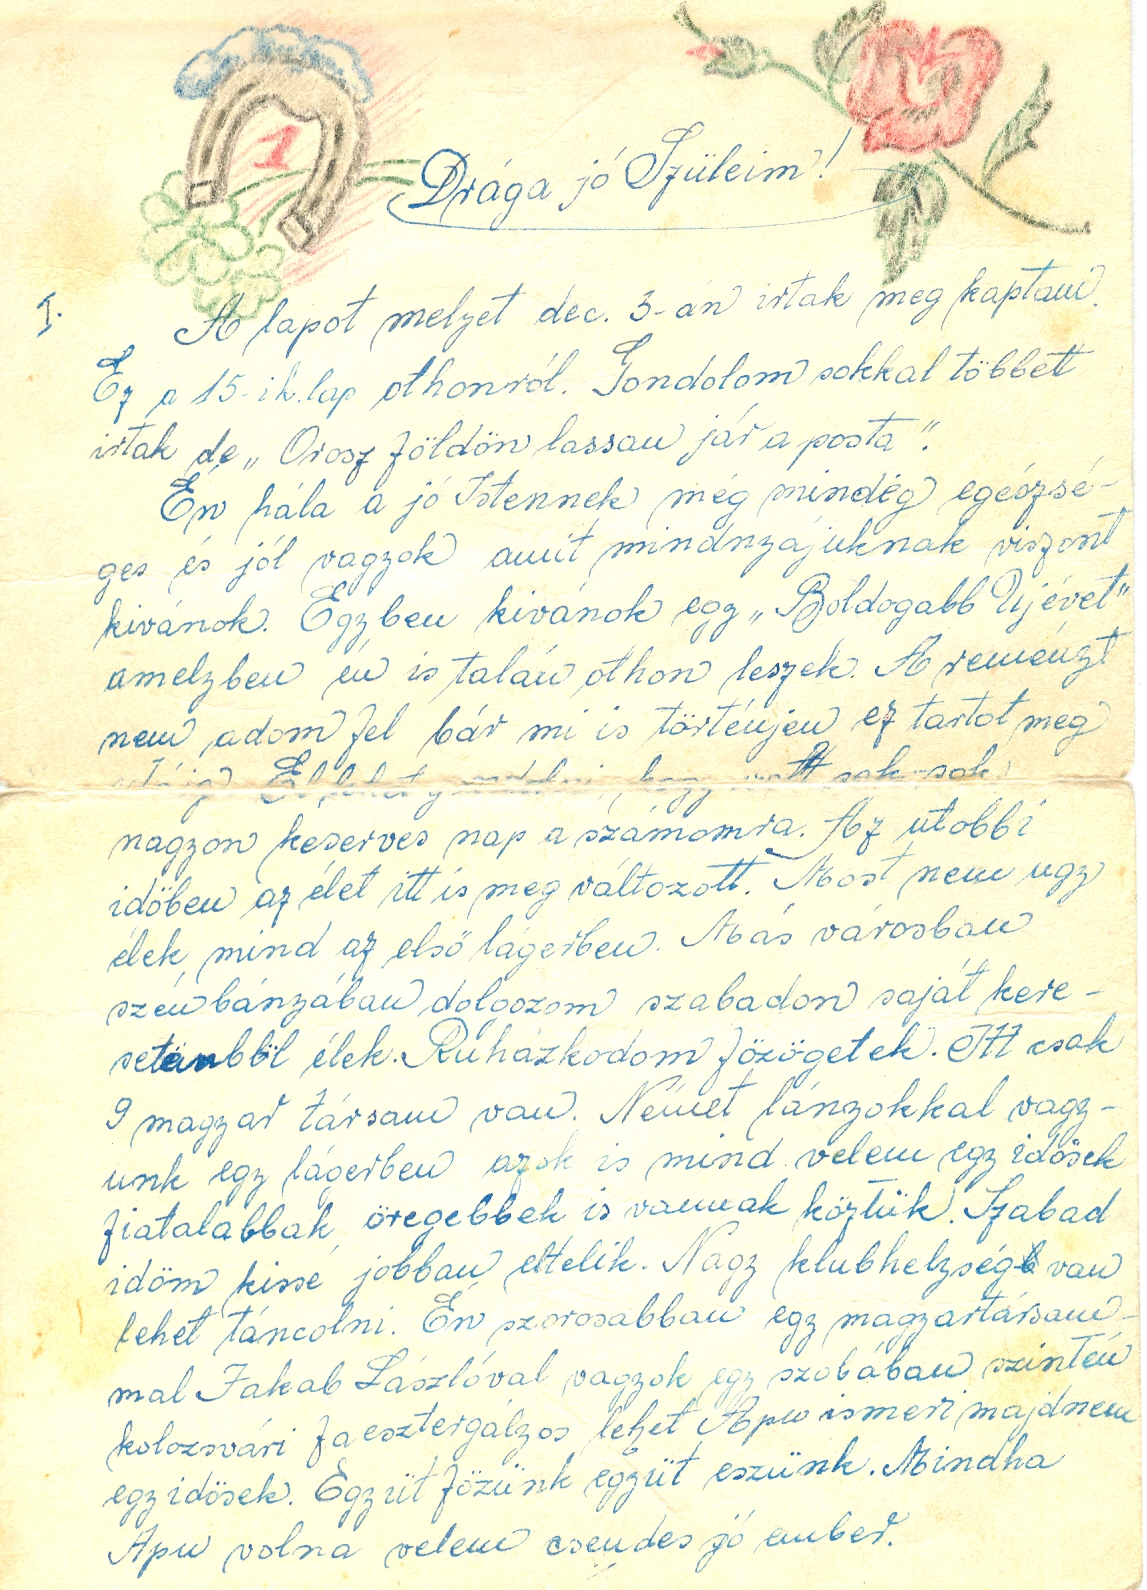 1
Drága jó Szüleim!
I.
A lapot melyet dec. 3-án irtak meg kaptam.
Ez a 15-ik. lap othonról. Gondolom sokkal többett
irtak de „Orosz földön lassan jár a posta”.
Én hála a jó Istennek még mindég egészsé-
ges és jól vagyok amit mindnyájuknak viszont
kivánok. Egyben kivánok egy „Boldogabb Újévet”
amelyben én is talán othon leszek. A reményt
nem adom fel bár mi is történjen ez tartot meg
hogy sok-sok
nagyon keserves nap a számomra. Az utobbi
időben az élet itt is meg változott. Most nem ugy
élek mind az első lágerben. Más városban
szén bányában dolgozom szabadon saját kere-
setänből élek. Ruházkodom főzögetek. Itt csak
9 magyar társam van. Német lányokkal vagy-
unk egy lágerben azok is mind velem egy idősek
fiatalabbak, öregebbek is vannak köztük. Szabad
időm kissé jobban ettelik. Nagy klubhelység van
lehet táncolni. Én szorosabban egy magyartársam-
mal Jakab Lászlóval vagyok egy szobában szintén
kolozsvári faesztergályos lehet Apu ismeri majdnem
egy idősek. Együt főzünk együt eszünk. Mindha
Apu volna velem csendes jó ember.